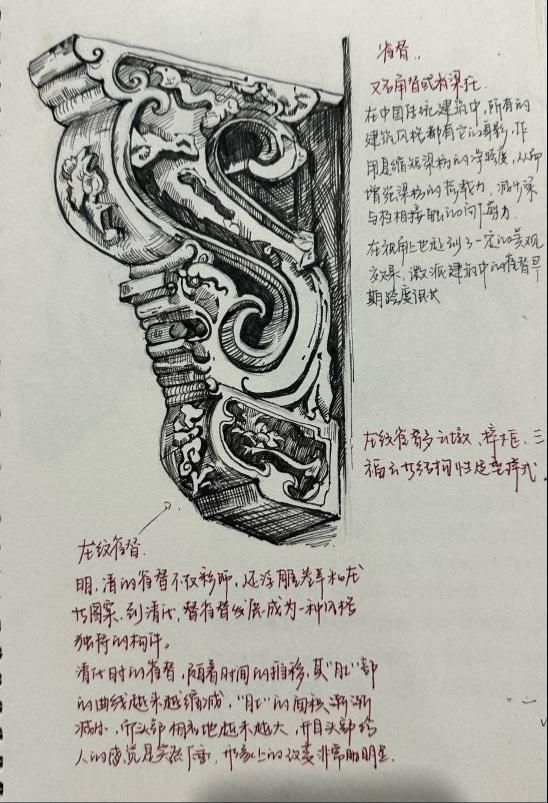 雀替..
又名角替或者梁托.
在中国传统建筑中,所有的
建筑风格都有它的身影,作
用是缩短梁枋的净跨度,从而
增强梁枋的荷载力,减少梁
与柱相接触的向下剪力.
在视角上也起到了一定的美观
效果,徽派建筑中的雀替早
期跨度很长
龙纹雀替多
福云
龙纹雀替.
明,清的雀替不仅彩饰,还浮雕卷草和龙
等图案,到清代,替雀替发展成为一种风格
独特的构件。
清代时的雀替,随着时间的推移,其“肚”部
的曲线越来越缩减,“肚”的面积渐渐
减小,而头部相应地越来越大,并且头部给
人的感觉是突然下垂,形象上的改变非常的明显.